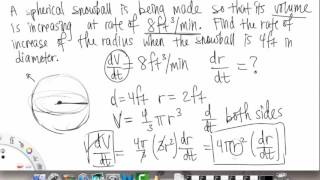 A spherical snowball is being made so that its volume
is increasing at rate of 8ft³/min. Find the rate of
increase of the radius when the snowball is 4ft in
diameter.
dV/dt = 8ft³/min dr/dt = ?
d=4ft r=2ft
V = 4/3 πr³ d/dt both sides
dV/dt = 4π/3 (3r²) dr/dt = 4πr² (dr/dt)